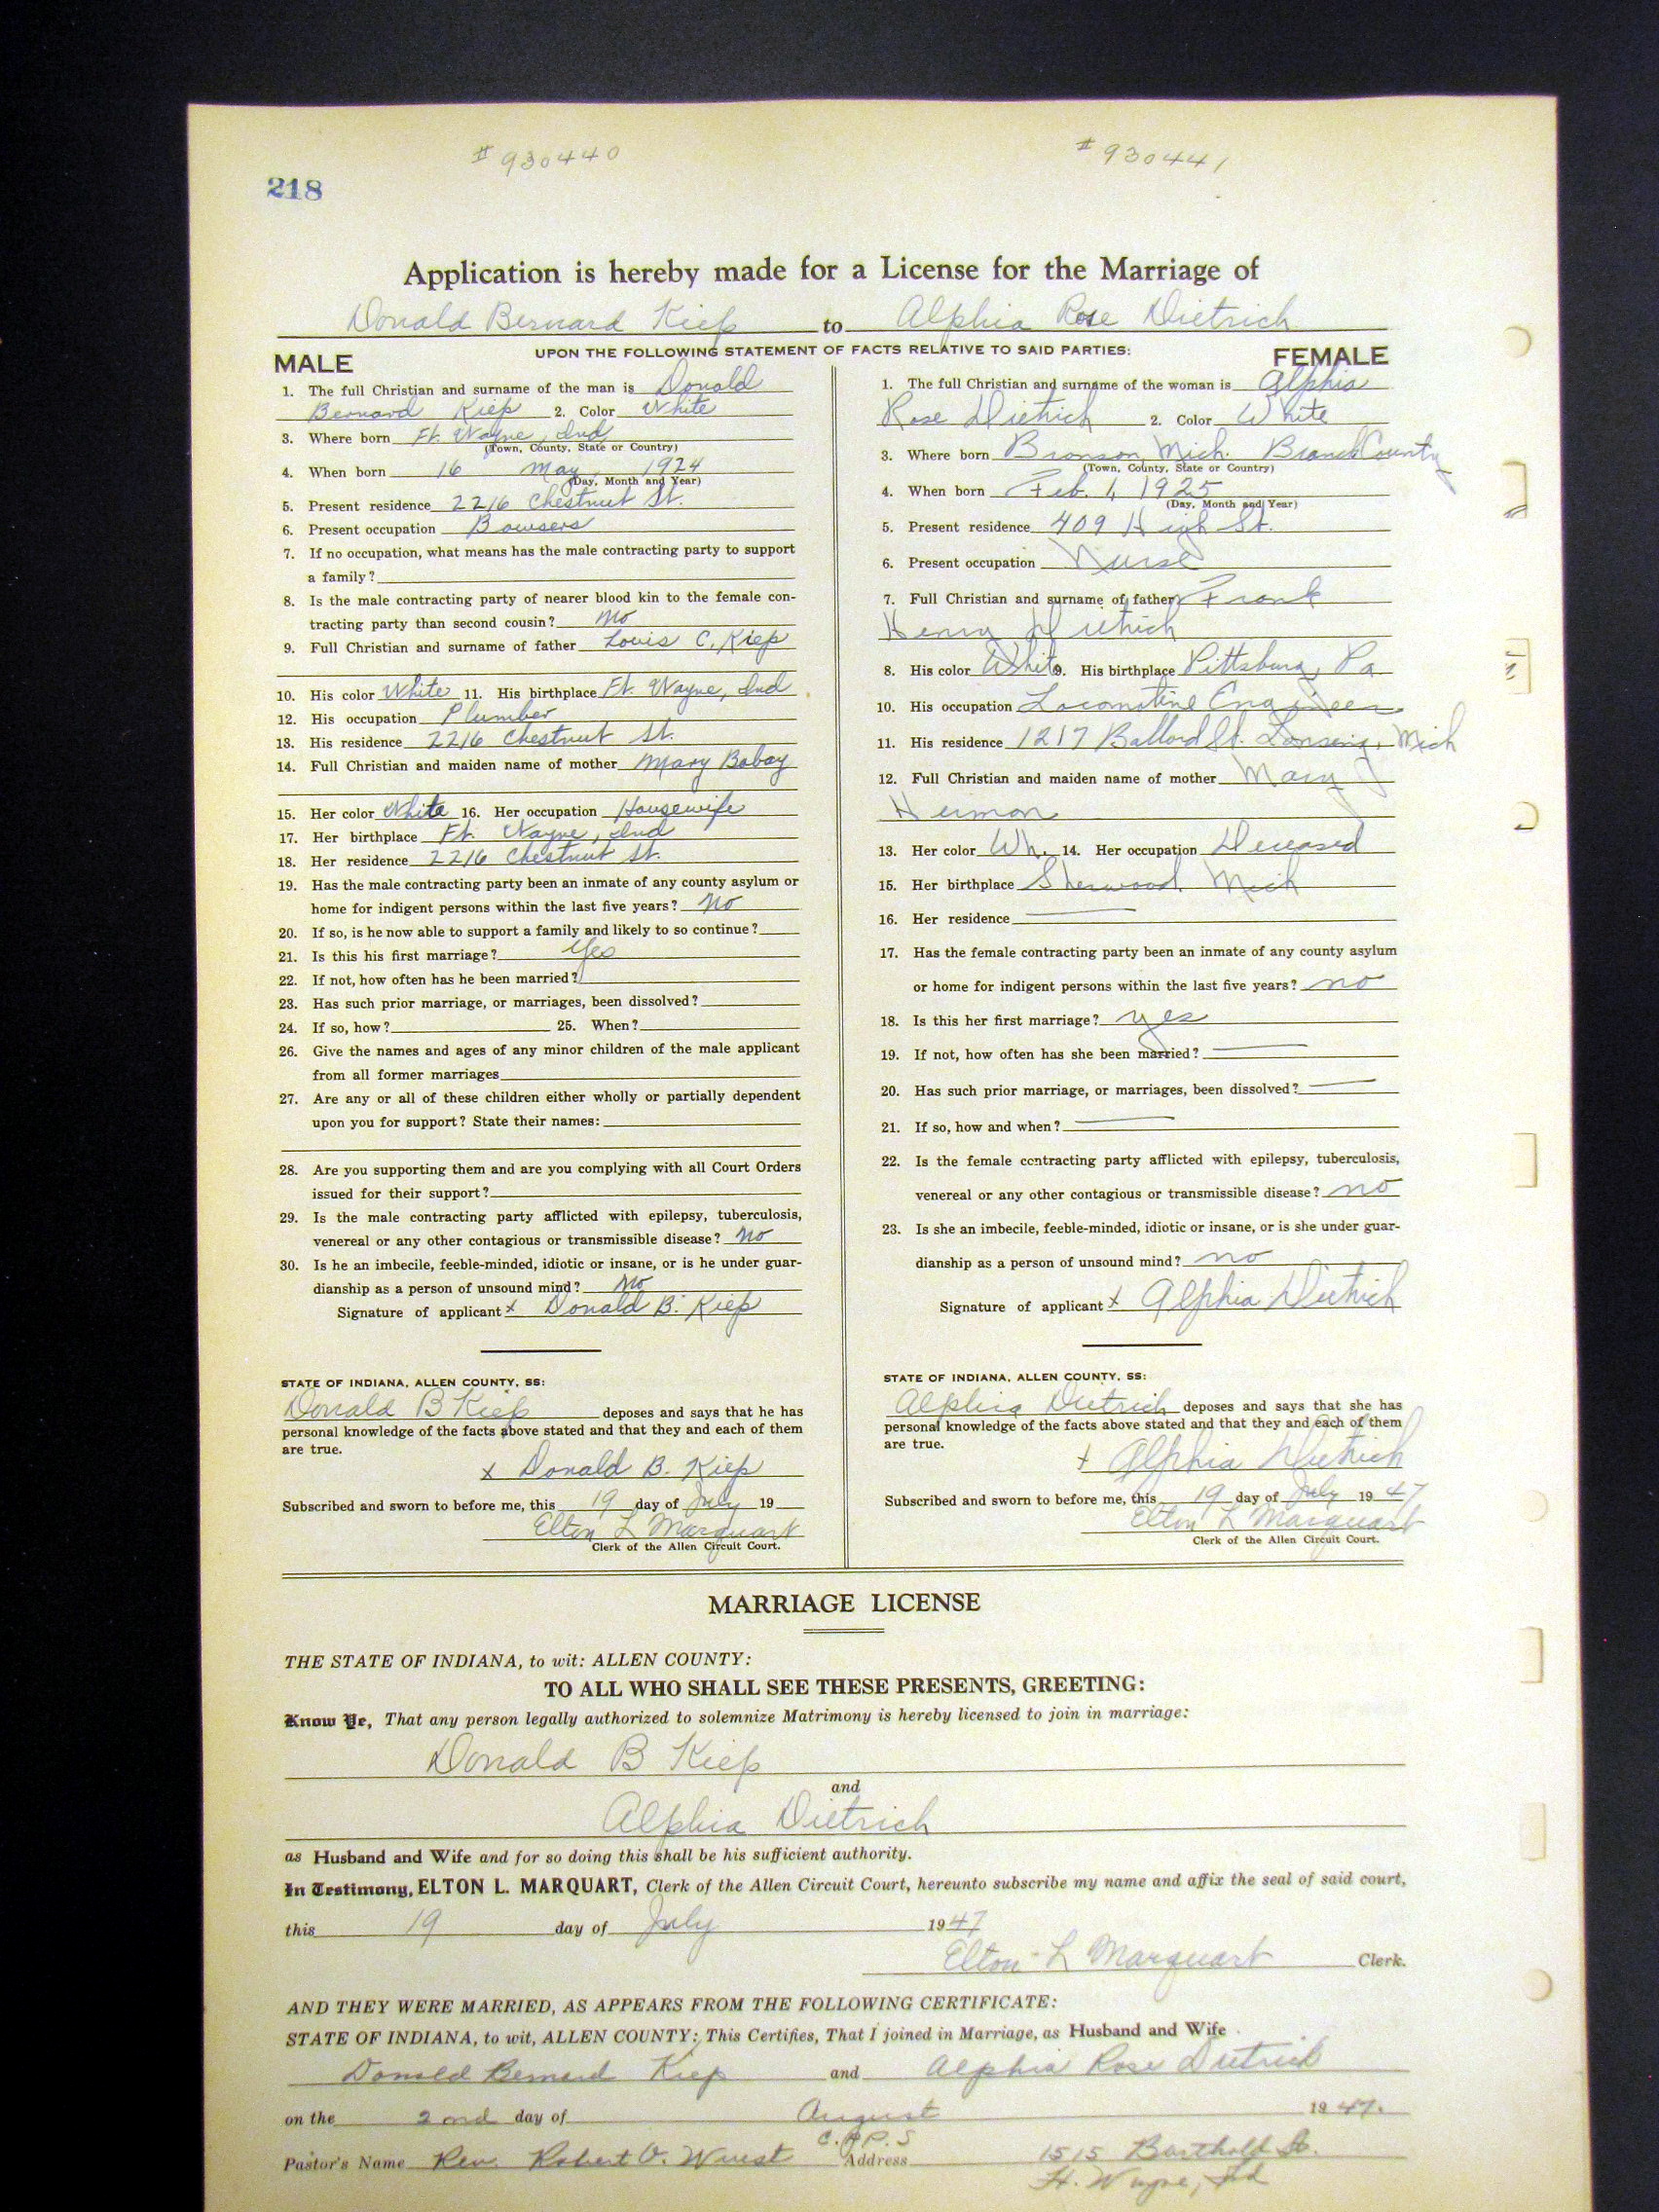 # 930440 # 930441
218
Application is hereby made for a License for the Marriage of
Donald Bernard Kiep to Alphia Rose Dietrich
UPON THE FOLLOWING STATEMENT OF FACTS RELATIVE TO SAID PARTIES:
MALE
1. The full Christian and surname of the man is Donald
Bernard Kiep 2. Color White
3. Where born Ft. Wayne, Ind
(Town, County, State or Country)
4. When born 16 May 1924
(Day, Month and Year)
5. Present residence 2216 Chestnut St.
6. Present occupation Bowsers
7. If no occupation, what means has the male contracting party to support
a family?
8. Is the male contracting party of nearer blood kin to the female con-
tracting party than second cousin? No
9. Full Christian and surname of father Louis C. Kiep
10. His color White 11. His birthplace Ft. Wayne, Ind
12. His occupation Plumber
13. His residence 2216 Chestnut St.
14. Full Christian and maiden name of mother Mary Bobay
15. Her color White 16. Her occupation Housewife
17. Her birthplace Ft. Wayne, Ind
18. Her residence 2216 Chestnut St.
19. Has the male contracting party been an inmate of any county asylum or
home for indigent persons within the last five years? No
20. If so, is he now able to support a family and likely to so continue?
21. Is this his first marriage? Yes
22. If not, how often has he been married?
23. Has such prior marriage, or marriages, been dissolved?
24. If so, how? 25. When?
26. Give the names and ages of any minor children of the male applicant
from all former marriages
27. Are any or all of these children either wholly or partially dependent
upon you for support? State their names:
28. Are you supporting them and are you complying with all Court Orders
issued for their support?
29. Is the male contracting party afflicted with epilepsy, tuberculosis,
venereal or any other contagious or transmissible disease? No
30. Is he an imbecile, feeble-minded, idiotic or insane, or is he under guar-
dianship as a person of unsound mind? No
Signature of applicant x Donald B. Kiep
STATE OF INDIANA, ALLEN COUNTY, SS:
Donald B Kiep deposes and says that he has
personal knowledge of the facts above stated and that they and each of them
are true.
x Donald B. Kiep
Subscribed and sworn to before me, this 19 day of July 19
Elton L Marquart
Clerk of the Allen Circuit Court.
FEMALE
1. The full Christian and surname of the woman is Alphia
Rose Dietrich 2. Color White
3. Where born Bronson, Mich. Branch County
(Town, County, State or Country)
4. When born Feb. 1, 1925
(Day, Month and Year)
5. Present residence 409 High St.
6. Present occupation Nurse
7. Full Christian and surname of father Frank
Henry Dietrich
8. His color White 9. His birthplace Pittsburg, Pa
10. His occupation Locomotive Engineer
11. His residence 1217 Ballard St. Lansing, Mich
12. Full Christian and maiden name of mother Mary J
Hermon
13. Her color Wh. 14. Her occupation Deceased
15. Her birthplace Sherwood, Mich
16. Her residence
17. Has the female contracting party been an inmate of any county asylum
or home for indigent persons within the last five years? no
18. Is this her first marriage? yes
19. If not, how often has she been married?
20. Has such prior marriage, or marriages, been dissolved?
21. If so, how and when?
22. Is the female contracting party afflicted with epilepsy, tuberculosis,
venereal or any other contagious or transmissible disease? no
23. Is she an imbecile, feeble-minded, idiotic or insane, or is she under guar-
dianship as a person of unsound mind? no
Signature of applicant x Alphia Dietrich
STATE OF INDIANA, ALLEN COUNTY, SS:
Alphia Dietrich deposes and says that she has
personal knowledge of the facts above stated and that they and each of them
are true.
x Alphia Dietrich
Subscribed and sworn to before me, this 19 day of July 19 47
Elton L Marquart
Clerk of the Allen Circuit Court.
MARRIAGE LICENSE
THE STATE OF INDIANA, to wit: ALLEN COUNTY:
TO ALL WHO SHALL SEE THESE PRESENTS, GREETING:
Know Ye, That any person legally authorized to solemnize Matrimony is hereby licensed to join in marriage:
Donald B Kiep
and
Alphia Dietrich
as Husband and Wife and for so doing this shall be his sufficient authority.
In Testimony, ELTON L. MARQUART, Clerk of the Allen Circuit Court, hereunto subscribe my name and affix the seal of said court,
this 19 day of July 1947
Elton L Marquart Clerk.
AND THEY WERE MARRIED, AS APPEARS FROM THE FOLLOWING CERTIFICATE:
STATE OF INDIANA, to wit, ALLEN COUNTY: This Certifies, That I joined in Marriage, as Husband and Wife
Donald Bernard Kiep and Alphia Rose Dietrich
on the 2nd day of August 1947.
C.PP.S
Pastor's Name Rev. Robert O. Wuest Address 1515 Barthold St.
Ft. Wayne, Ind